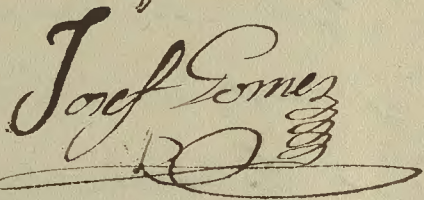 Josef Gomez